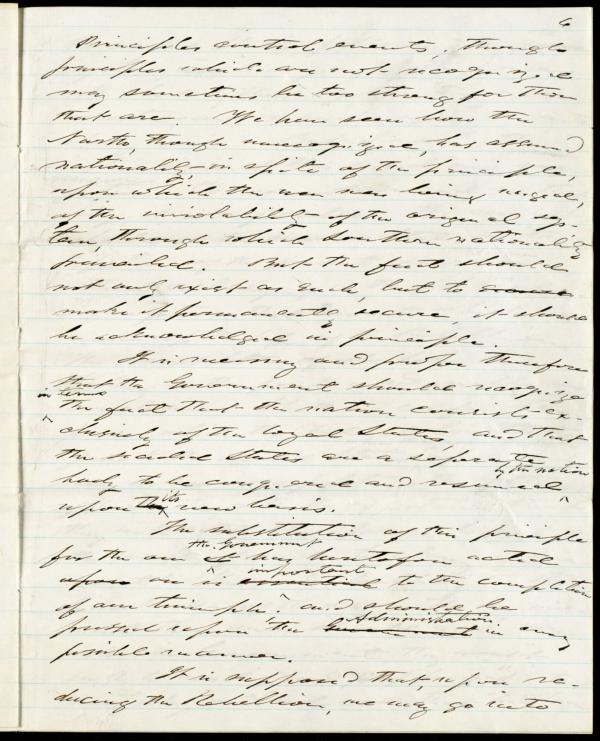 6
Principles control events, though
principles which are not recognized
may sometimes be too strong for those
that are. We have seen how the
North, though unrecognized, has assumed
nationality in spite of the principle,
upon which the war was being waged,
of the inviolability of the original sys-
tem, through which Southern nationality
prevailed. But the fact should
not only exist as such, but to
make it permanently secure, it should
be acknowledged in principle.
It is necessary and proper therefore
that the Government should recognize
in terms
the fact that the nation consists ex-
clusively of the loyal States, and that
the seceded States are a separate
by the nation
body to be conquered and resumed
its
upon the new basis.
The substitution of this principle
the Government
for the one it has heretofore acted
important
upon on is essential to the completion
of our triumph, and should be
Administration
pressed upon the Government in every
possible manner.
It is supposed that, upon re-
ducing the Rebellion, we may go into